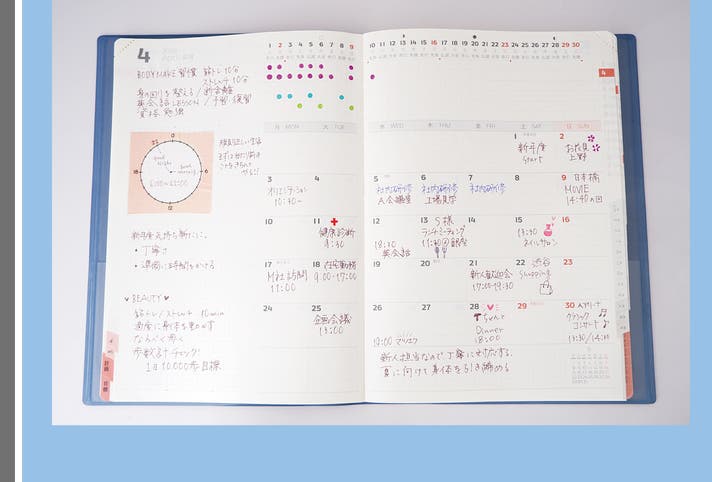 4
1 2 3 4 5 6 7 8 9 10 11 12 13 14 15 16 17 18 19 20 21 22 23 24 25 26 27 28 29 30
BODY MAKE 習慣 筋トレ 10分
ストレッチ 10分
身の回りを整える / 断捨離
英会話 LESSON / 予習 復習
資格 勉強
0
6
12
18
23
good night
good morning
6:00～23:00
新年度
丁寧に
準備に時間をかける
♥BEAUTY♥
筋トレ / ストレッチ 10min
適度に身体を動かす
歩数計チェック!
1日 10,000歩 目標
月 MON
火 TUE
水 WED
木 THU
金 FRI
土 SAT
日 SUN
1 新年度
Start
2 お花見
上野
3
オリエンテーション
10:30～
4
5
社内研修
A会議室
6
社内研修
工場見学
7
社内研修
8
9 日本橋
MOVIE
14:40の回
10
11
健康診断
9:30
12
18:30
英会話
13 S様
ランチミーティング
11:30@銀座
14
15
13:30
ネイルサロン
16
17
M社訪問
11:00
18 在宅勤務
9:00-17:00
19
20
21
新人歓迎会
17:00-19:30
22 渋谷
Shopping
23
24
25
企画会議
13:00
26
19:00
27
28
Dinner
18:00
29
30
クラシック
コンサート
13:30/14:00
新人担当なので丁寧に対応する。
夏に向けて身体を引き締める
4